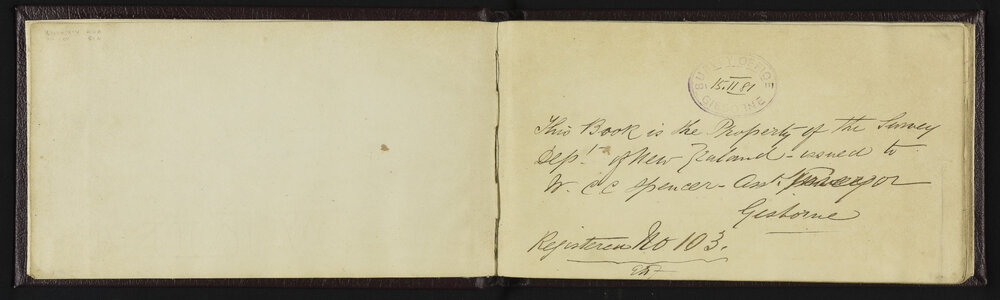 SURVEY OFFICE
15.II 81
GISBORNE
This Book is the Property of the Survey
Dept. of New Zealand - issued to
W. C C Spencer - Asst. Surveyor
Gisborne
Registered No 103.